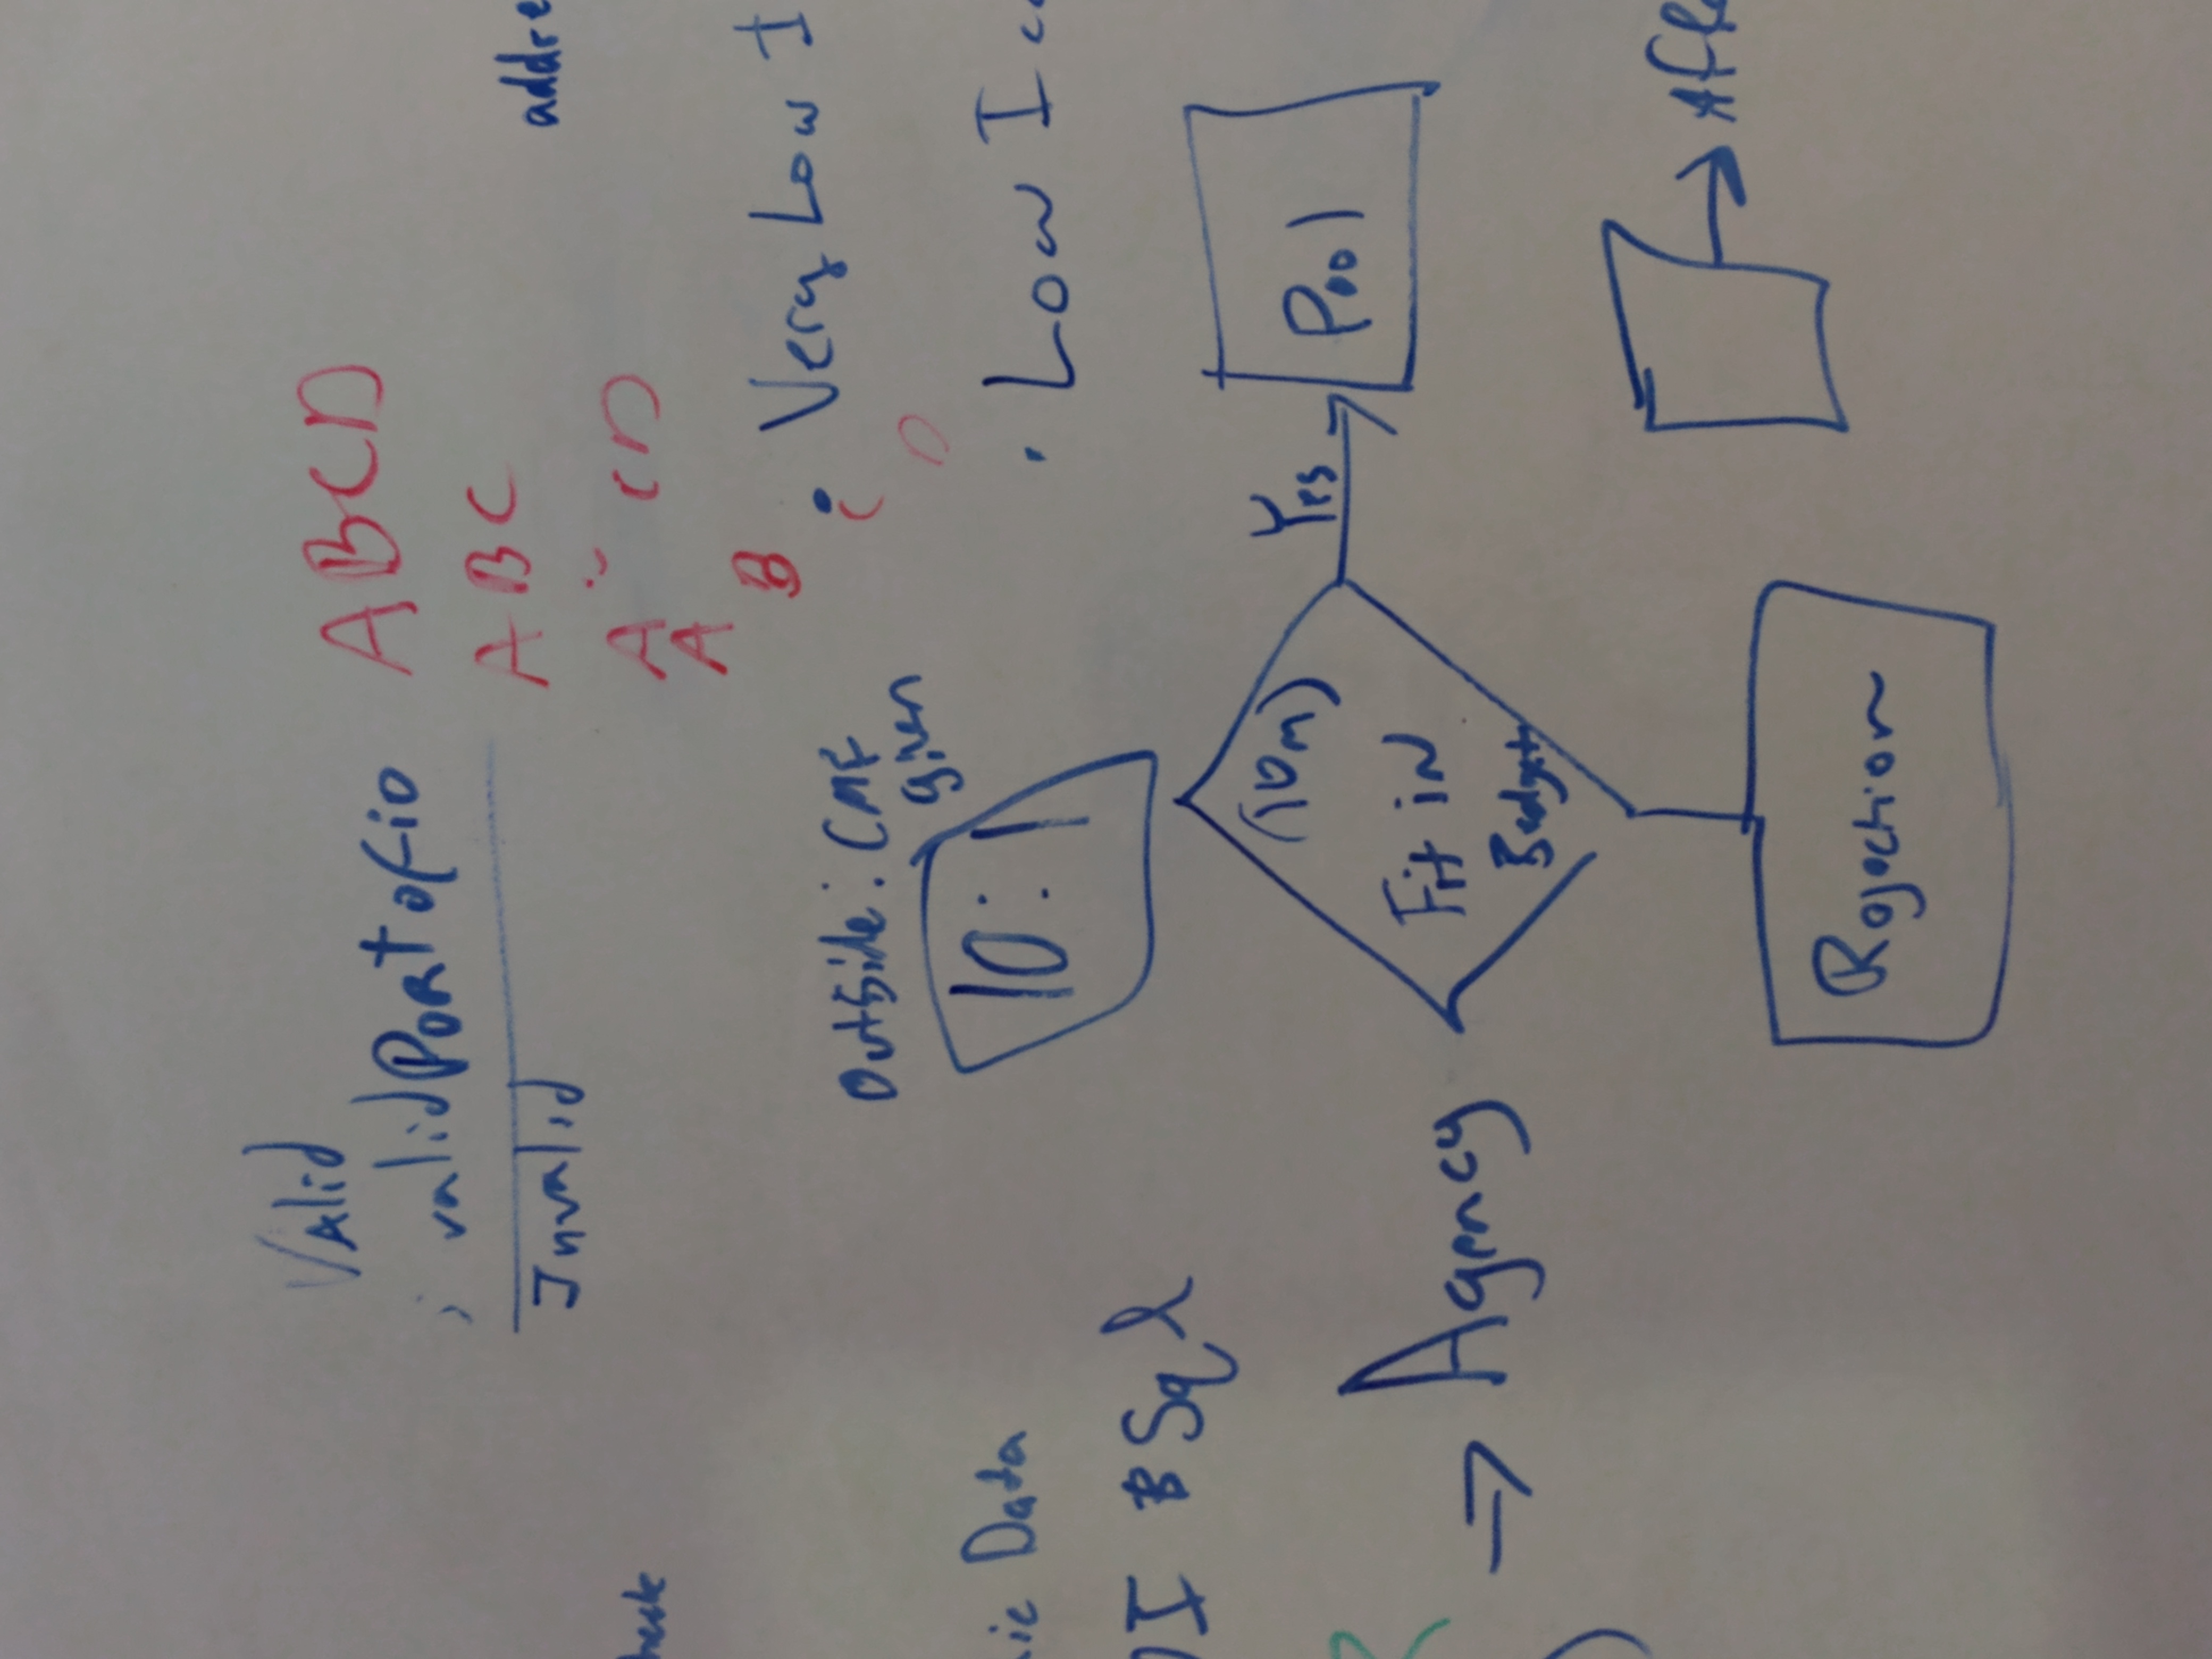 Valid
; validPortofio
Invalid
A B C D
A B C
A C D
A
B
C
D
addre
heck
• Very Low I
• Low I co
Outside: CMF
given
10:1
ic Data
DI Sql
→ Agency
(10m)
Fit in
Budget
Yes
Pool
Rejection
Affo